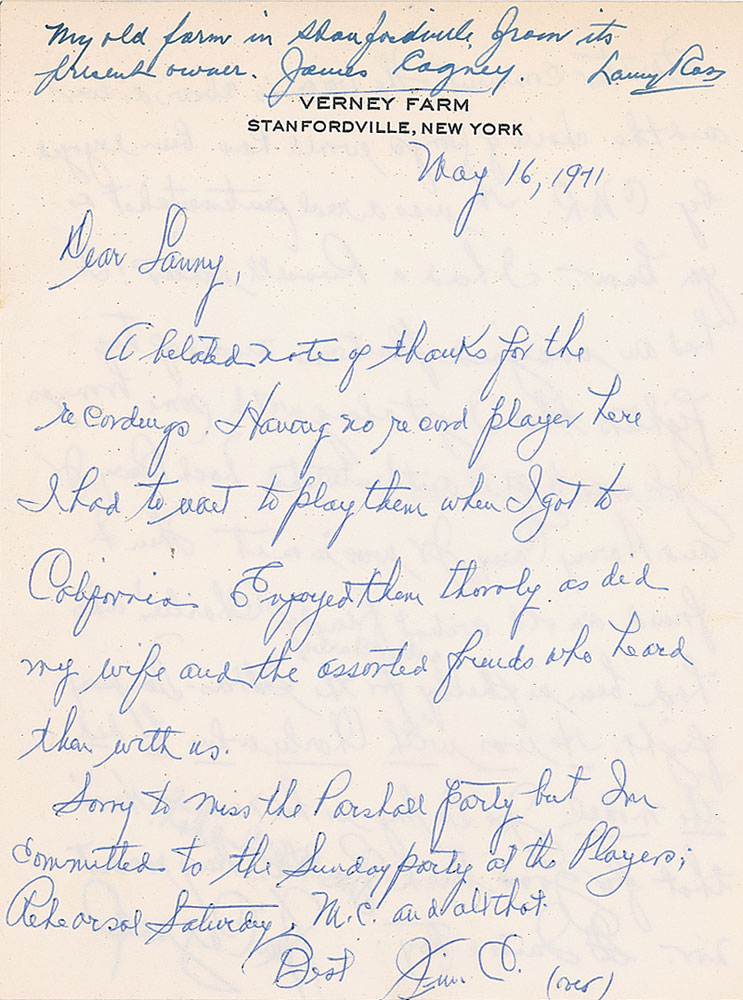 My old farm in Stanfordville, from its
present owner. James Cagney. Lanny Ross
VERNEY FARM
STANFORDVILLE, NEW YORK
May 16, 1971
Dear Lanny,
A belated note of thanks for the
recordings. Having no record player here
I had to wait to play them when I got to
California. Enjoyed them thoroly as did
my wife and the assorted friends who heard
them with us.
Sorry to miss the Parshall party but Im
committed to the Sunday party at the Players;
Rehearsal Saturday, M.C. and all that.
Best Jim C. (over)